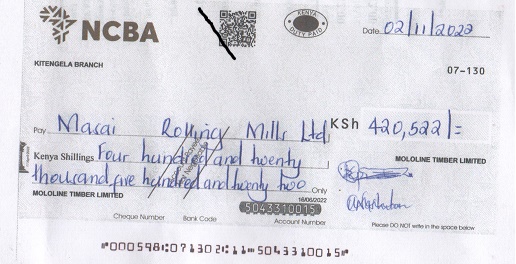 NCBA
KENYA
DUTY PAID
Date 02/11/2022
KITENGELA BRANCH
07-130
Pay Masai Rolling Mills Ltd KSh 420,522/=
Kenya Shillings Four hundred and twenty
thousand five hundred and twenty two Only
MOLOLINE TIMBER LIMITED
MOLOLINE TIMBER LIMITED
16/06/2022
5043310015
Cheque Number Bank Code Account Number
Please DO NOT write in the space below
"000598"071302:11"5043310015"